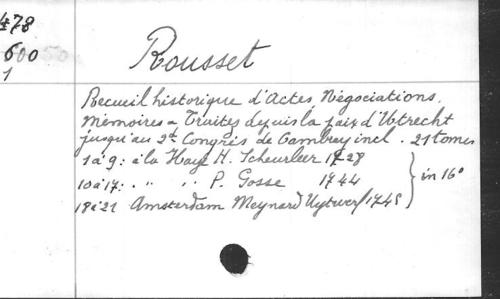 478
600
1
Rousset
Recueil historique d'Actes, Négociations,
Mémoires & Traités depuis la paix d'Utrecht
jusqu'au 2d Congrès de Cambrey incl. 21 tomes
1 à 9 : à la Haye H. Scheurleer 1728
10 à 17 : " " P. Gosse 1744 } in 16°
18 à 21 Amsterdam Meynard Uytwerf 1745